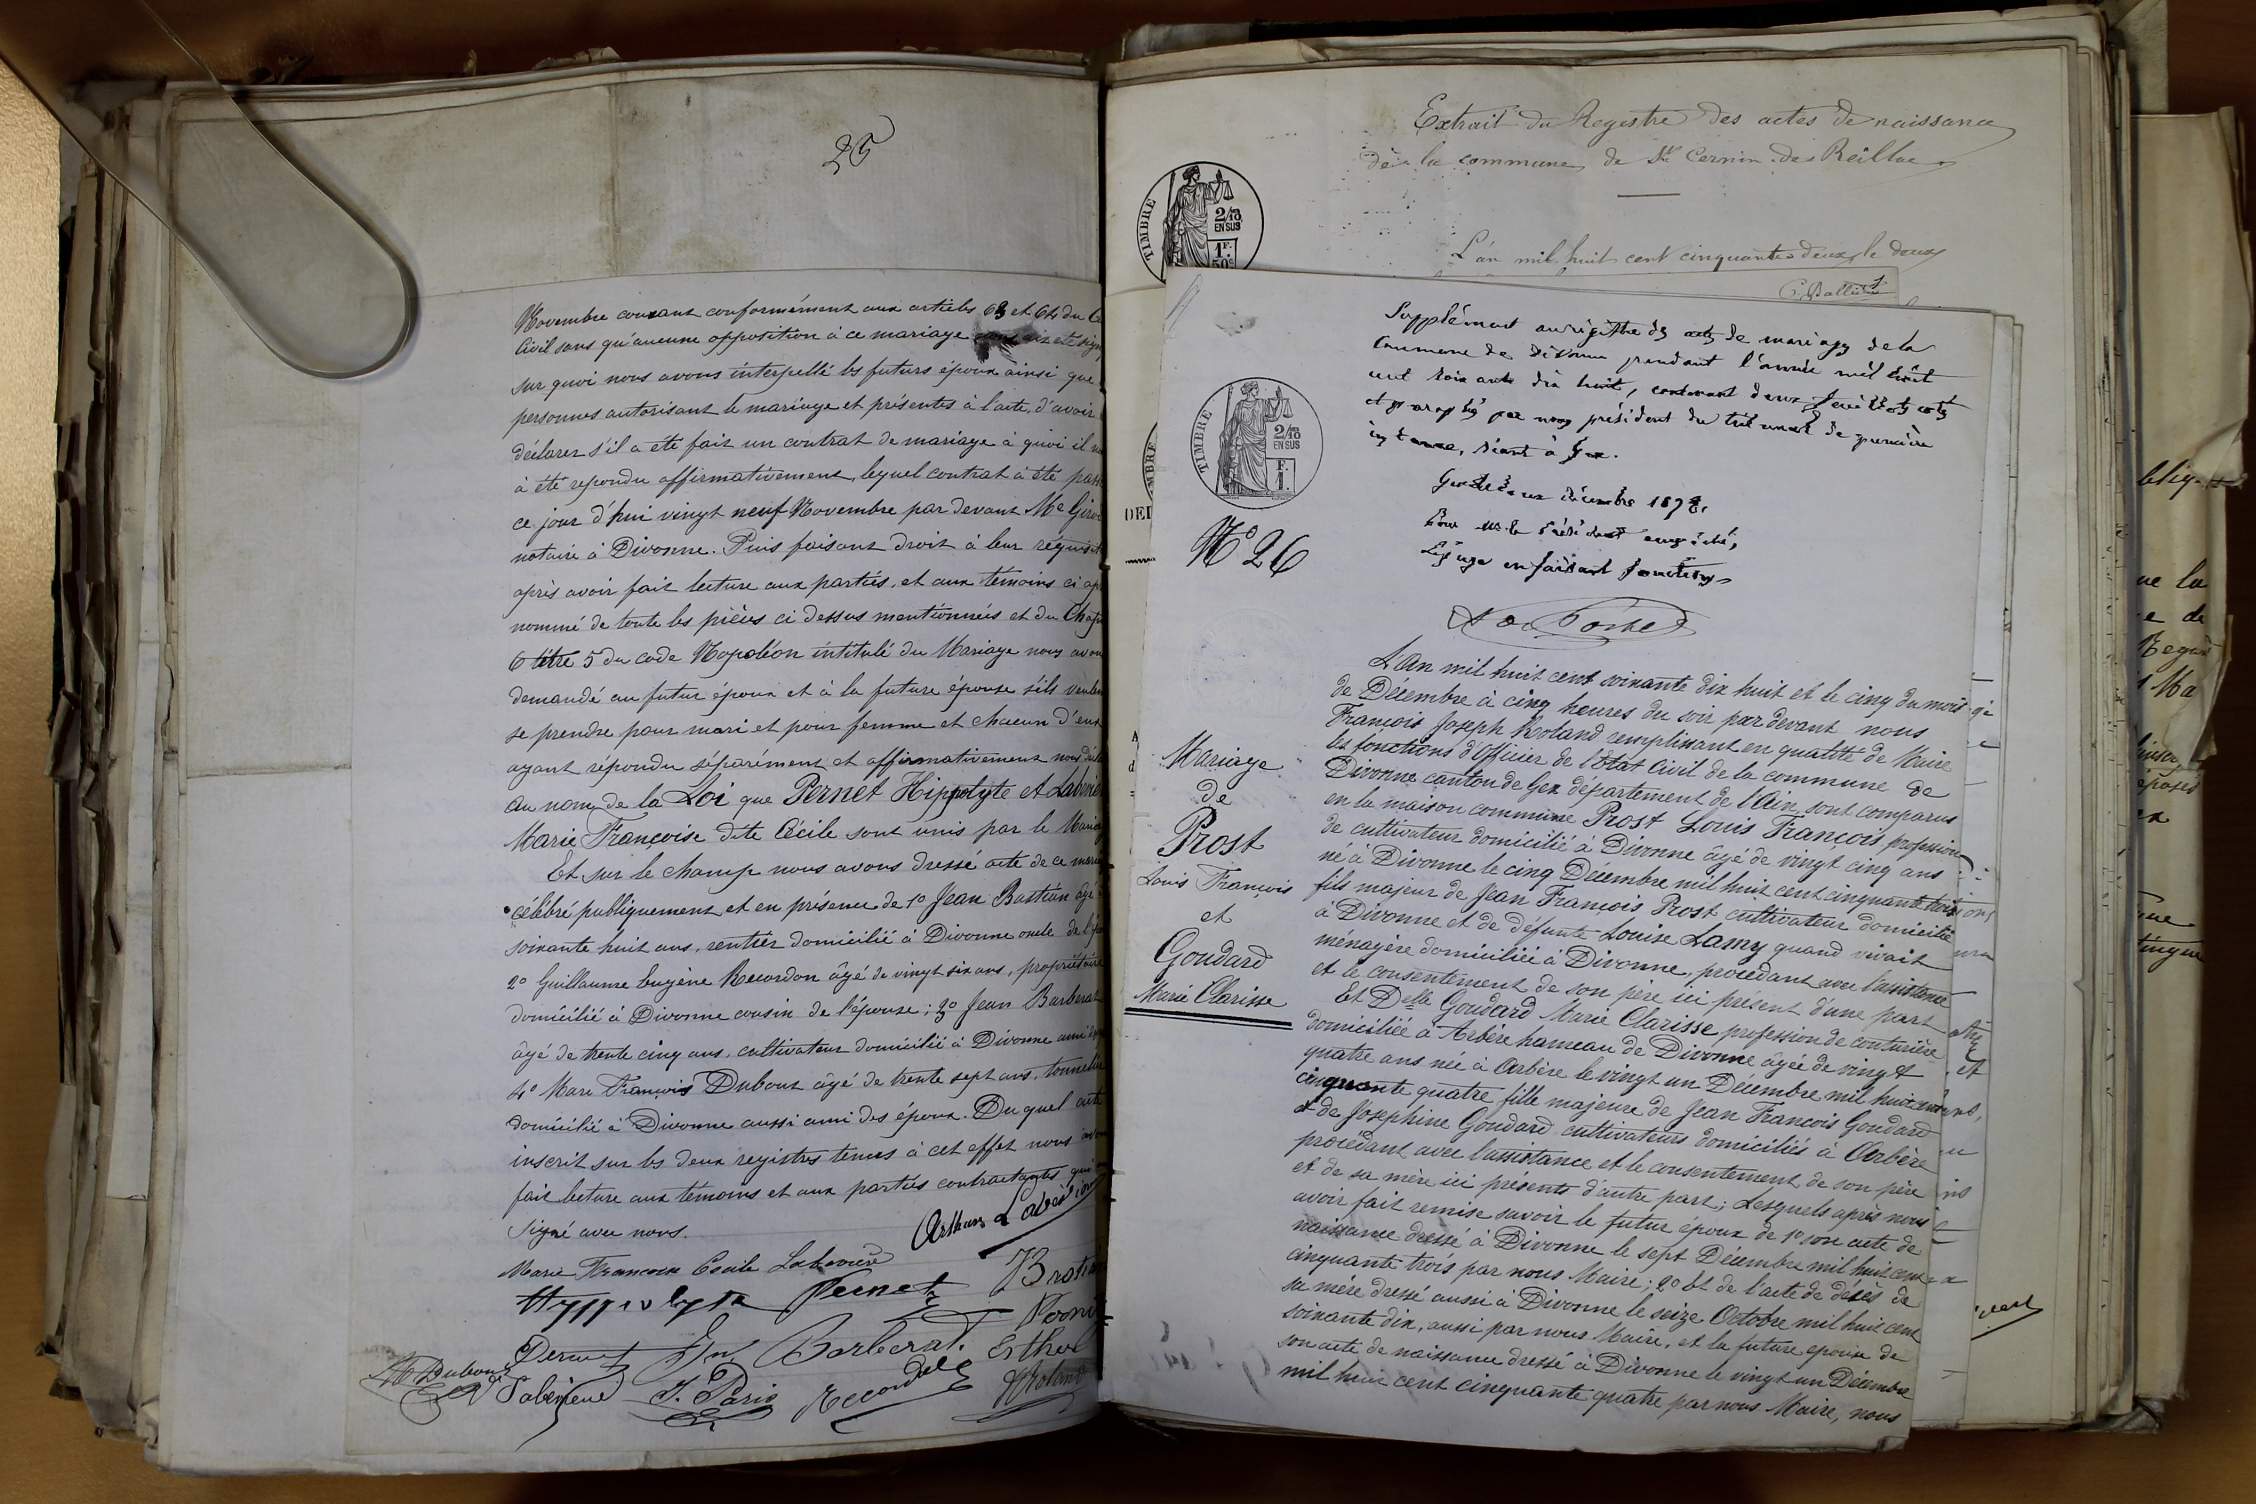 25
Novembre courant conformément aux articles 63 et 64 du
Civil sans qu'aucune opposition à ce mariage
sur quoi nous avons interpellé les futurs époux ainsi que
personnes autorisant le mariage et présentes à l'acte, d'avoir
déclarer s'il a été fait un contrat de mariage à quoi il
à été repondu affirmativement, lequel contrat à été
ce jour d'hui vingt neuf Novembre par devant Me
notaire à Divonne. Puis faisant droit à leur
après avoir fait lecture aux parties, et aux témoins ci
nommé de toute les pièces ci dessus mentionnées et du
6 titre 5 du code Napoléon intitulé du Mariage nous
demandé au futur époux et à la future épouse s'ils
se prendre pour mari et pour femme et chacun d'eux
ayant répondu séparément et affirmativement nous
au nom de la Loi que Pernet Hippolyte et
Marie Françoise dite Cécile sont unis par le
Et sur le champ nous avons dressé acte de ce
célébré publiquement et en présence de 1o Jean Bastian âgé
soixante huit ans, rentier domicilié à Divonne oncle de
2o Guillaume Eugène Recordon âgé de vingt six ans, propriétaire
domicilié à Divonne cousin de l'épouse; 3o Jean Barberat
âgé de trente cinq ans, cultivateur domicilié à Divonne ami
4o Marc François Dubout âgé de trente sept ans, tonnelier
domicilié à Divonne aussi ami des époux. Du quel acte
inscrit sur les deux registres tenus à cet effet nous
fait lecture aux témoins et aux parties contractantes qui
signé avec nous.
Marie Francoise Cécile Labevière
Hyppolyte Pernet
Barberat. Esther
J. Paris
Extrait du Registre des actes de naissance
de la commune de St Cernin de Reillac
TIMBRE
2/10
EN SUS
1F.
50c
L'an mil huit cent cinquante deux, le douze
Supplément au registre des actes de mariage de la
Commune de Divonne pendant l'année mil huit
cent soixante dix huit, contenant deux feuillets cotés
et paraphés par nous président du tribunal de première
instance, séant à Gex.
décembre 1878,
Pour Mr le Président empêché,
Le juge en faisant fonctions
TIMBRE
2/10
EN SUS
F.
1.
No 26
Mariage
de
Prost
Louis François
et
Goudard
Marie Clarisse
L'An mil huit cent soixante dix huit et le cinq du mois
de Décembre à cinq heures du soir par devant nous
François Joseph Roland remplissant en qualité de Maire
les fonctions d'Officier de l'Etat Civil de la commune de
Divonne canton de Gex département de l'Ain, sont comparus
en la maison commune Prost Louis François, profession
de cultivateur domicilié à Divonne âgé de vingt cinq ans
né à Divonne le cinq Décembre mil huit cent cinquante trois
fils majeur de Jean François Prost cultivateur domicilié
à Divonne et de défunte Louise Lamy quand vivait
ménagère domiciliée à Divonne, procédant avec l'assistance
et le consentement de son père ici présent d'une part
Et Delle Goudard Marie Clarisse profession de couturière
domiciliée à Arbère hameau de Divonne âgée de vingt
quatre ans née à Arbère le vingt un Décembre mil huit cent
cinquante quatre fille majeure de Jean François Goudard
et de Joséphine Goudard cultivateurs domiciliés à Arbère
procédant avec l'assistance et le consentement de son père
et de sa mère ici présents d'autre part; Lesquels après nous
avoir fait remise savoir le futur epoux de 1o son acte de
naissance dressé à Divonne le sept Décembre mil huit cent
cinquante trois par nous Maire; 2o et de l'acte de décès de
sa mère dressé aussi à Divonne le seize Octobre mil huit cent
soixante dix, aussi par nous Maire, et la future epouse de
son acte de naissance dressé à Divonne le vingt un Décembre
mil huit cent cinquante quatre par nous Maire, nous